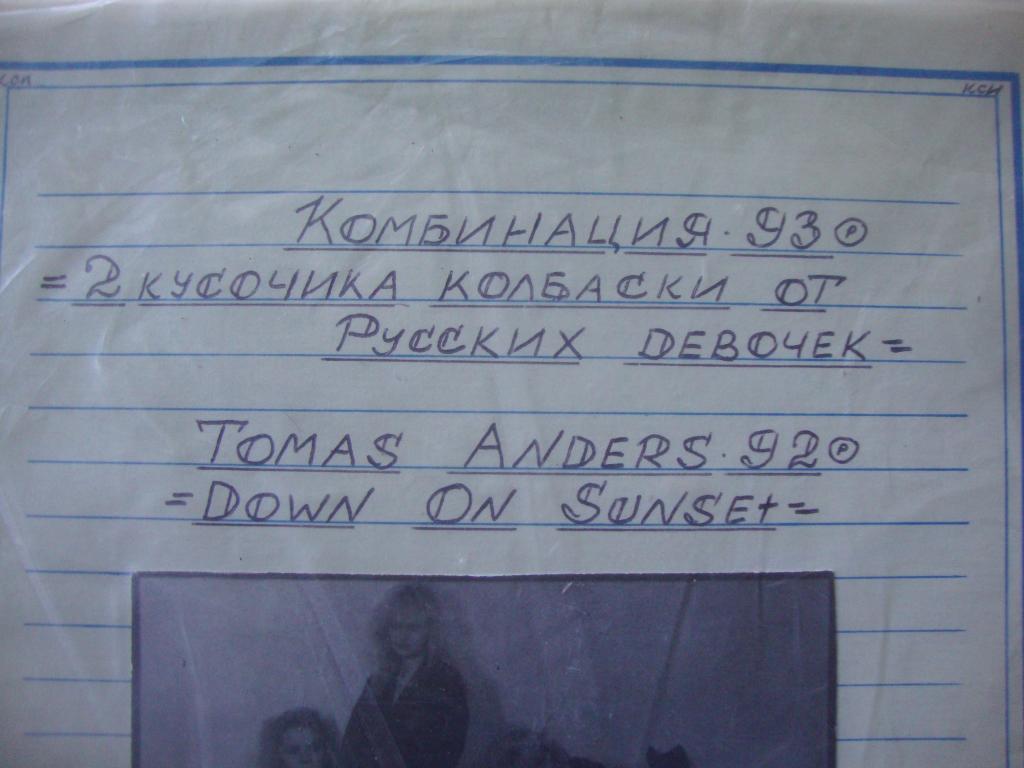 КСИ
Комбинация. 93 Ⓟ
= 2 кусочика колбаски от
Русских девочек =
Tomas Anders. 92 Ⓟ
= Down On Sunset =